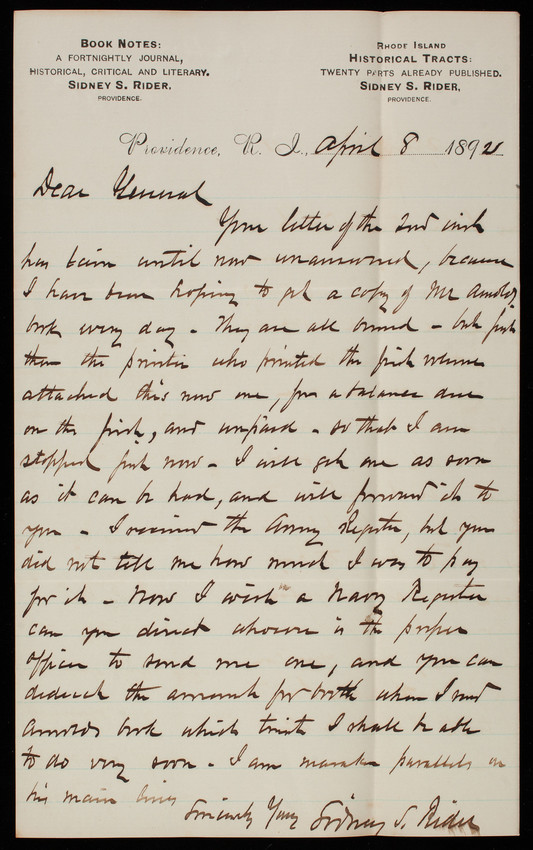 BOOK NOTES:
A FORTNIGHTLY JOURNAL,
HISTORICAL, CRITICAL AND LITERARY.
SIDNEY S. RIDER,
PROVIDENCE.
RHODE ISLAND
HISTORICAL TRACTS:
TWENTY PARTS ALREADY PUBLISHED.
SIDNEY S. RIDER,
PROVIDENCE.
Providence, R. I., April 8 1892
Dear General
Your letter of the 2nd inst
has been until now unanswered, because
I have been hoping to get a copy of Mr Arnolds
book every day - They are all bound - but just
then the printer who printed the first volume
attached this new one, for a balance due
on the first, and unpaid - so that I am
stopped just now - I will get one as soon
as it can be had, and will forward it to
you - I received the Army Register, but you
did not tell me how much I was to pay
for it - Now I wish a Navy Register
can you direct whoever is the proper
officer to send me one, and you can
deduct the amount for both when I send
Arnolds book which trust I shall be able
to do very soon - I am parallels on
his main lines
Sincerely Yours Sidney S. Rider